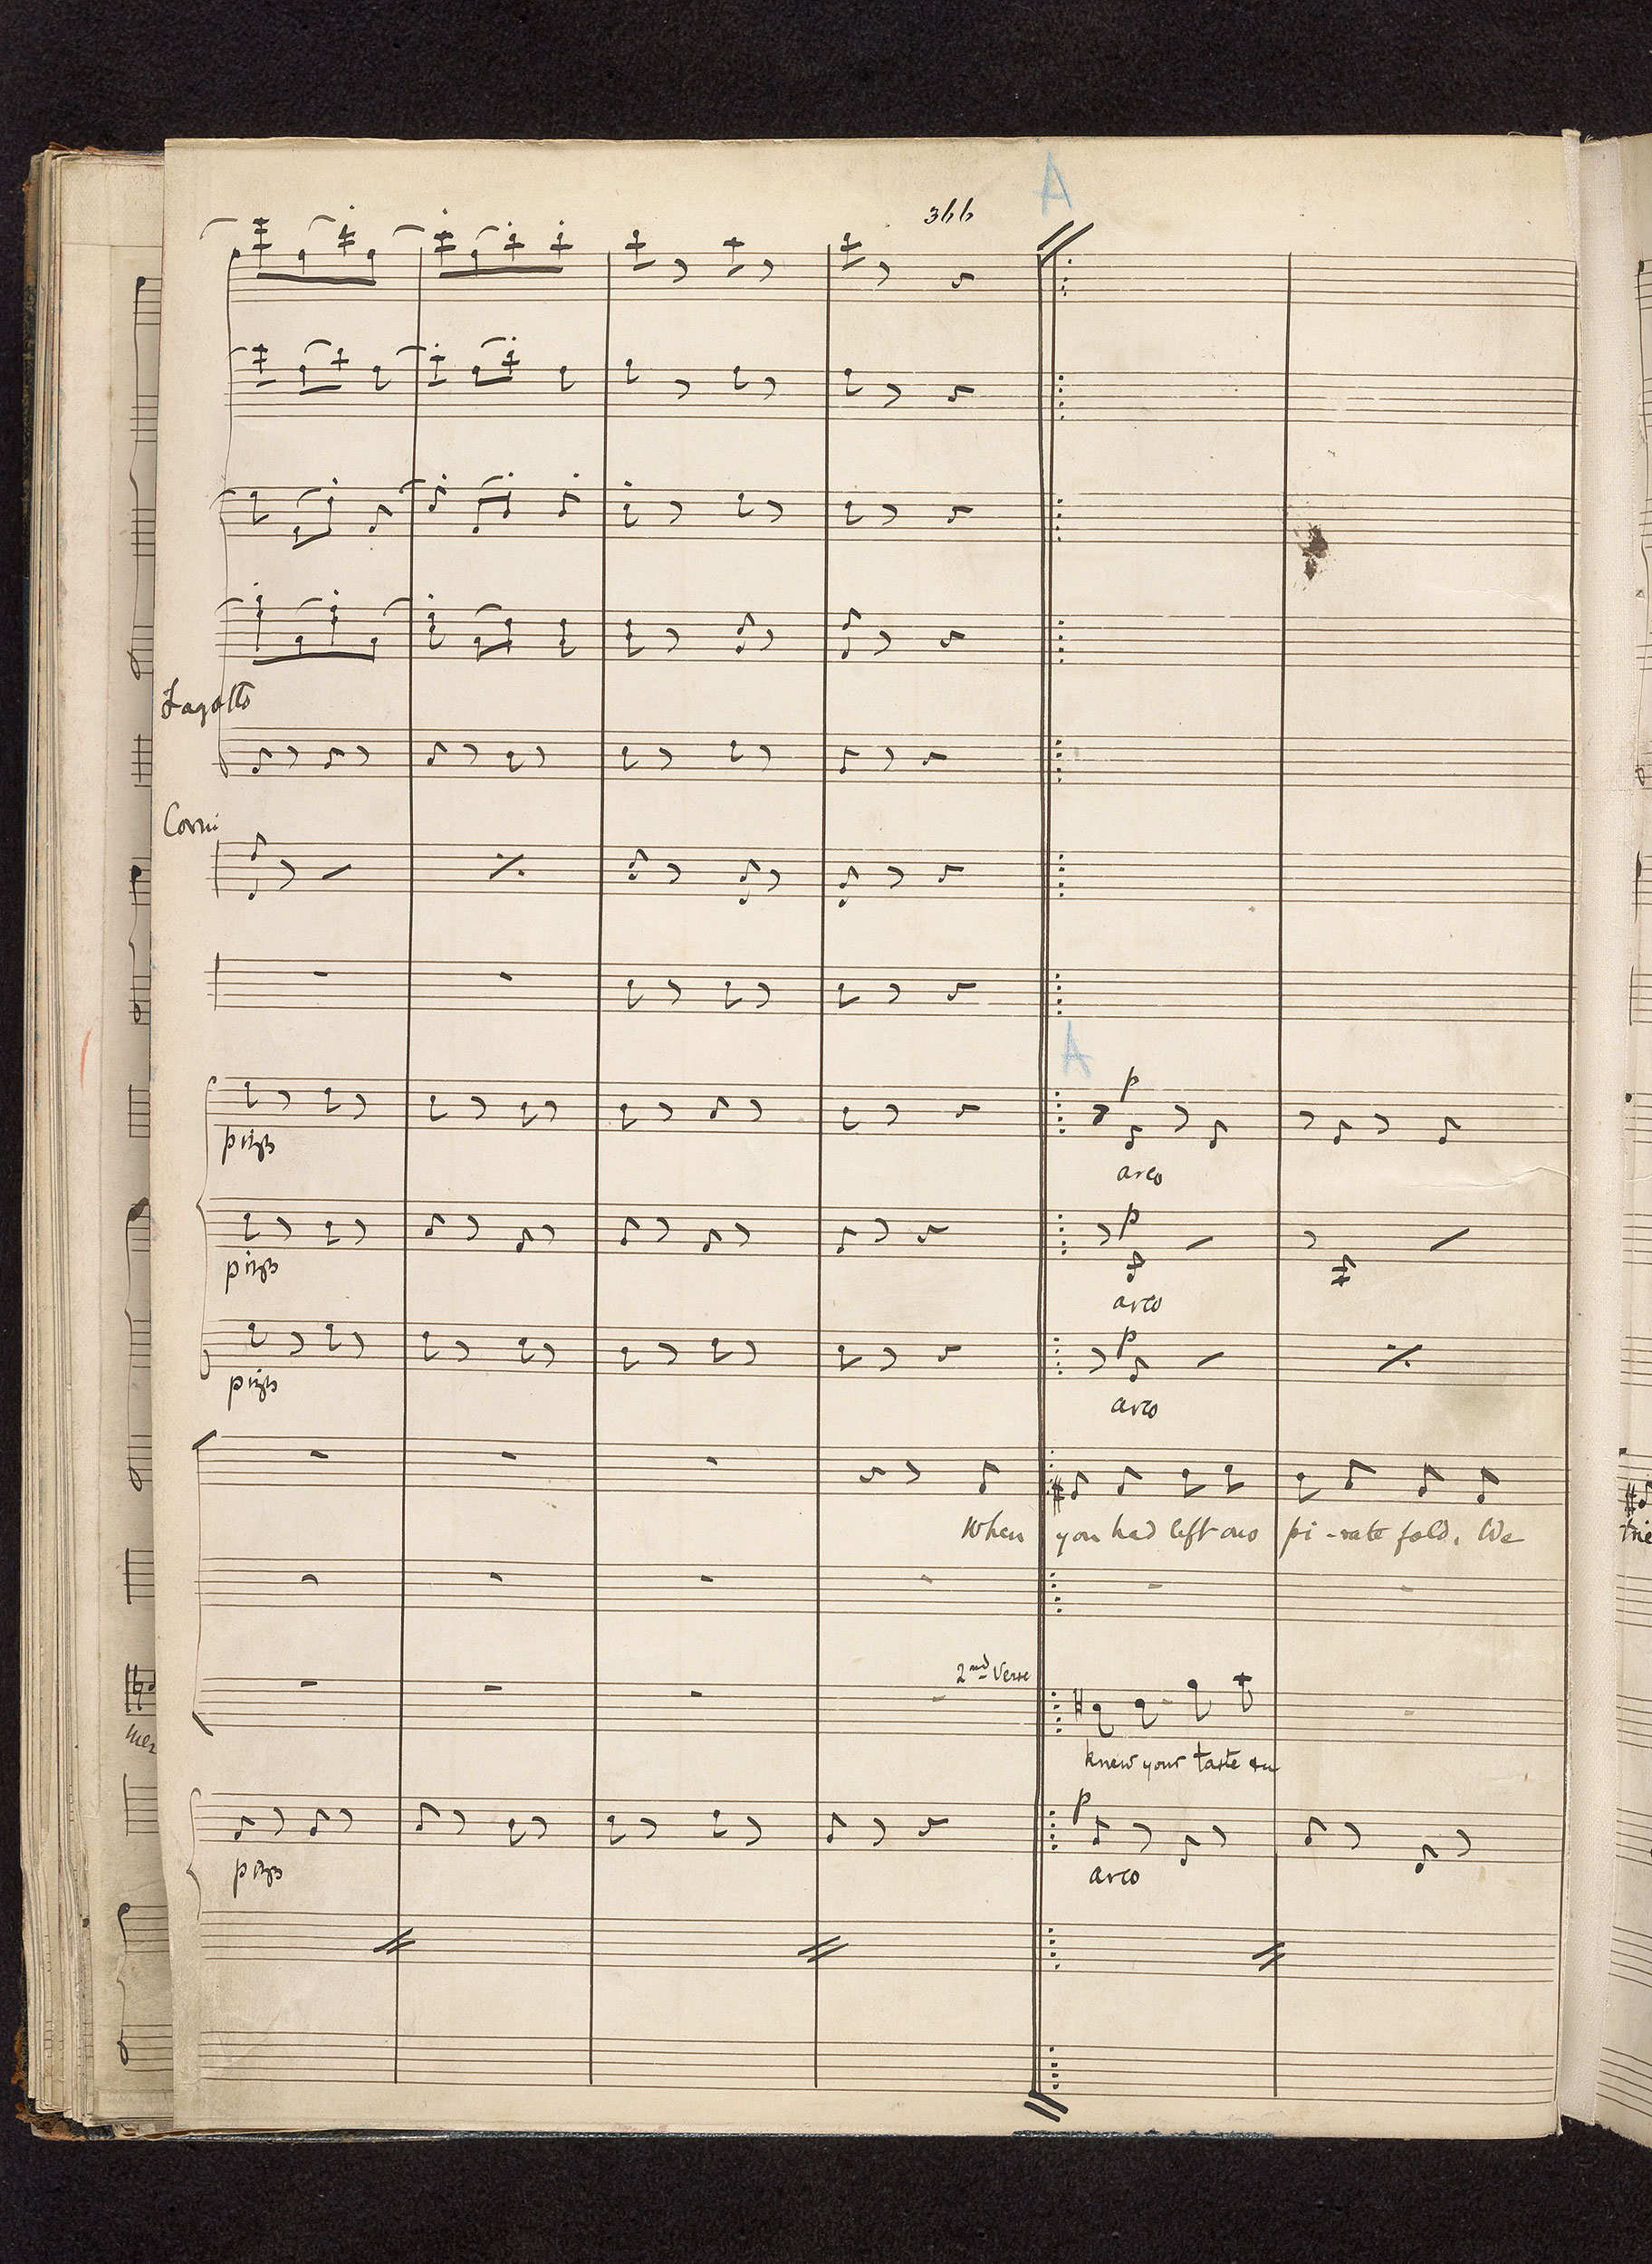 A
366
Fagotto
Corni
A
p
pizz
arco
p
pizz
arco
p
pizz
arco
When you had left our pi-rate fold. We
2nd Verse
knew your taste
p
pizz
arco